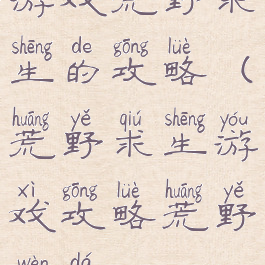 游戏荒野求
shēng de gōng lüè
生的攻略（
huāng yě qiú shēng yóu
荒野求生游
xì gōng lüè huāng yě
戏攻略荒野
wèn dá